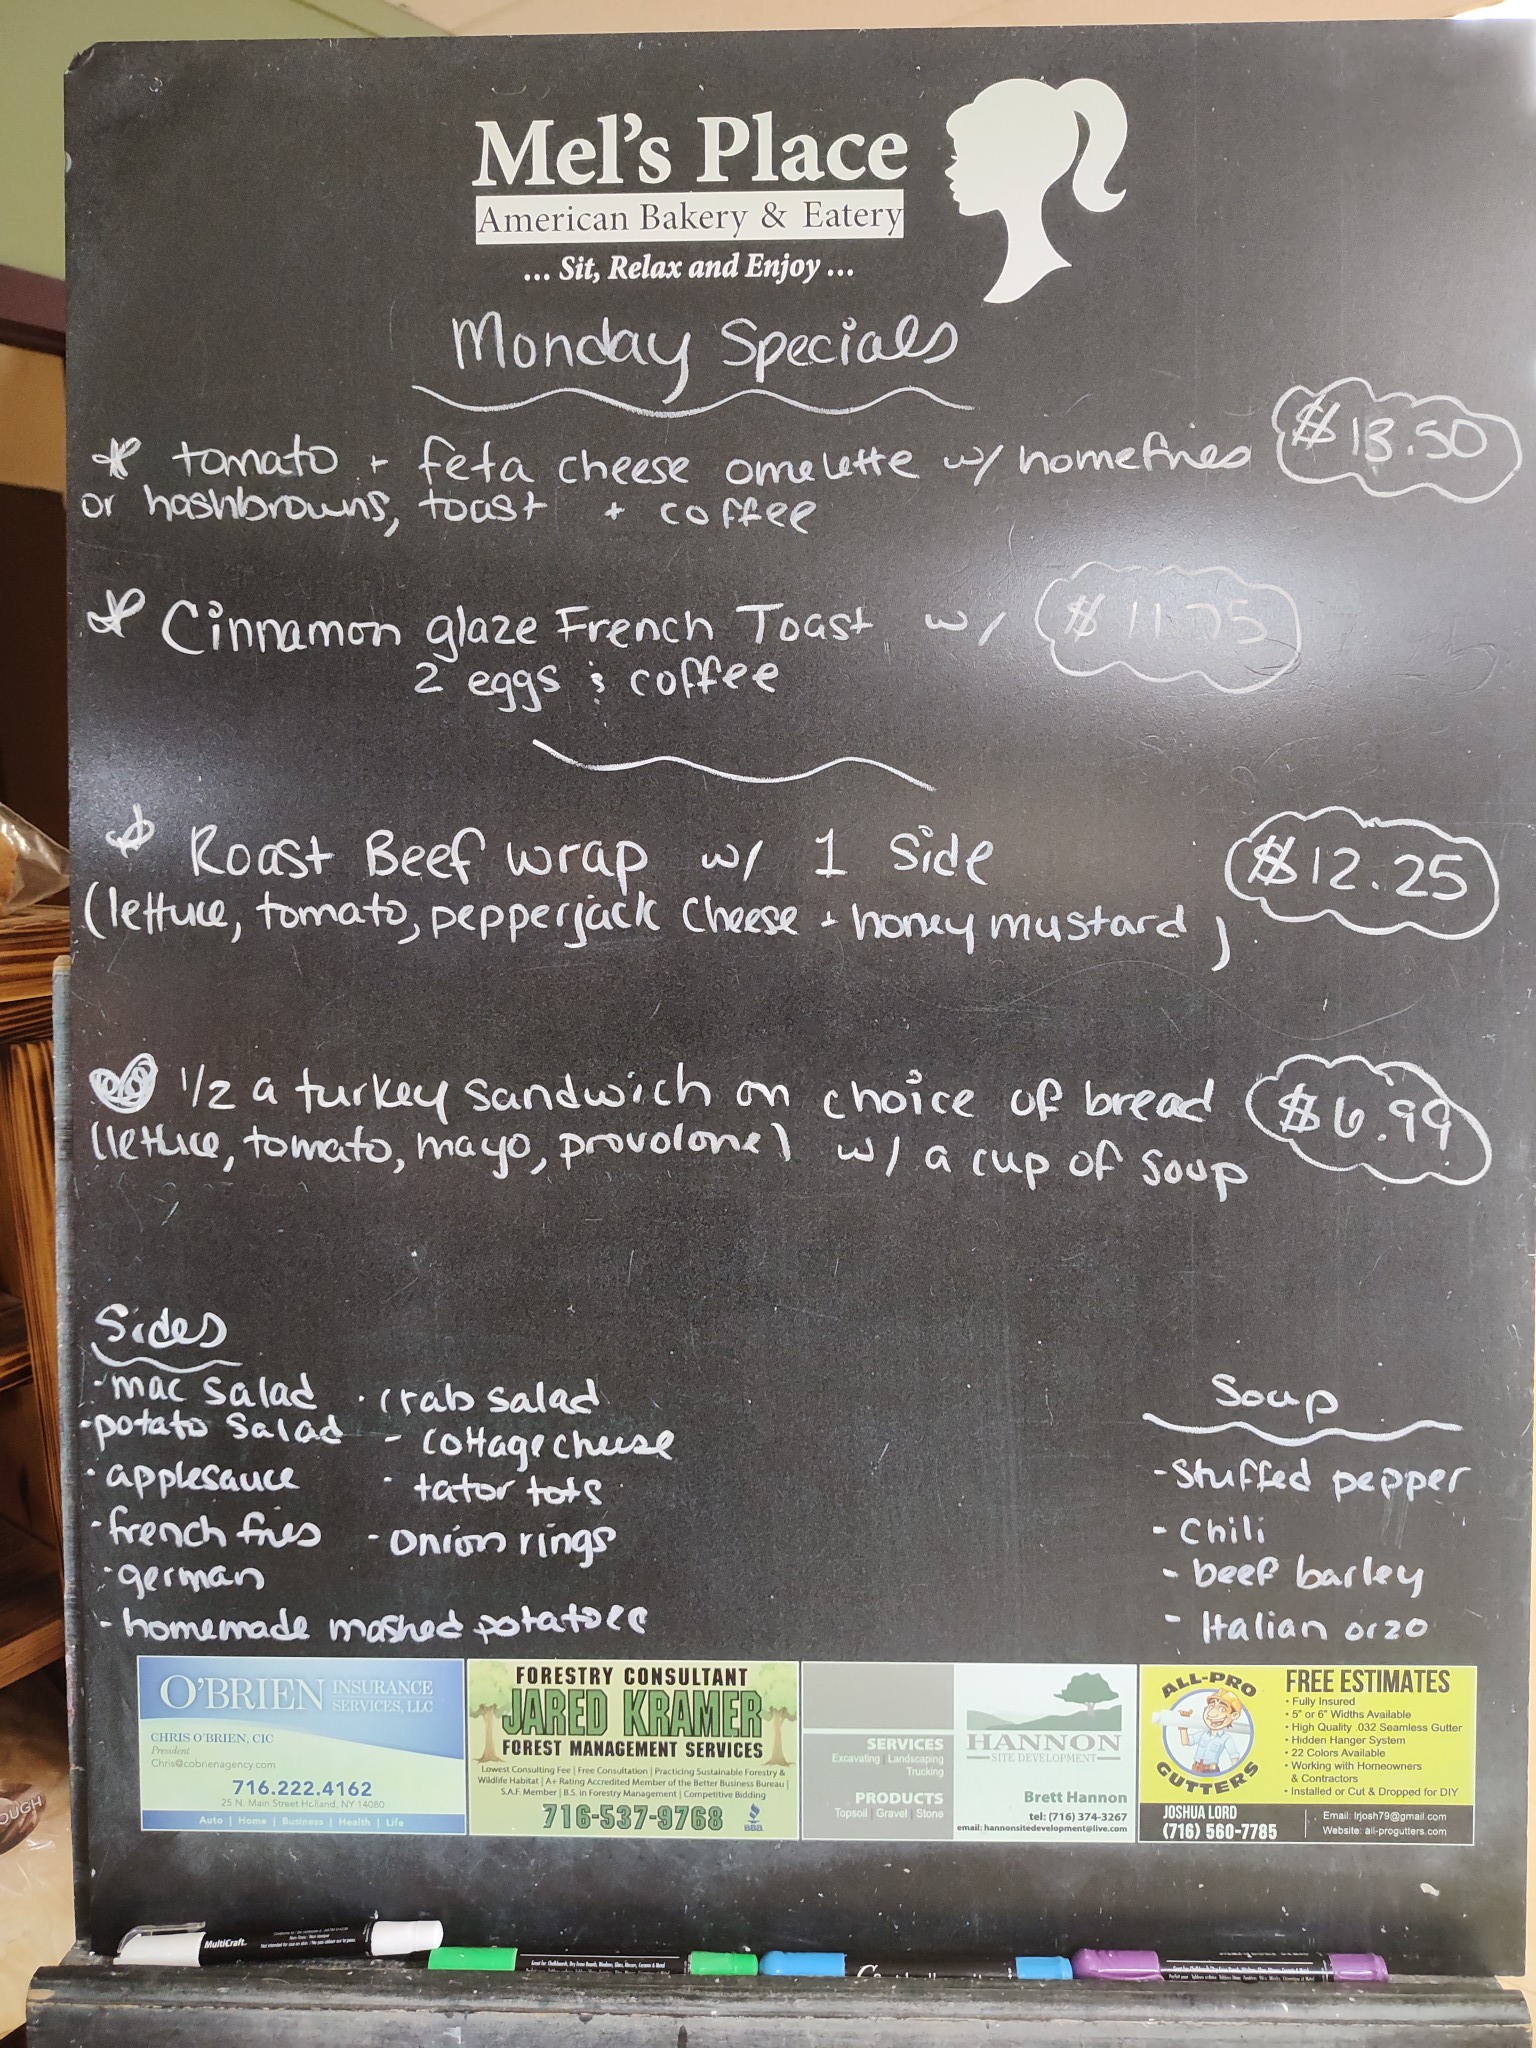 Mel's Place
American Bakery & Eatery
... Sit, Relax and Enjoy ...
Monday Specials
* tomato + feta cheese omelette w/ homefries $13.50
or hashbrowns, toast + coffee
* Cinnamon glaze French Toast w/ $11.75
2 eggs & coffee
* Roast Beef wrap w/ 1 side $12.25
(lettuce, tomato, pepperjack cheese + honey mustard)
1/2 a turkey sandwich on choice of bread $6.99
(lettuce, tomato, mayo, provolone) w/ a cup of soup
Sides
· mac salad
· potato salad
· applesauce
· french fries
· german
- homemade mashed potatoes
· crab salad
- cottage cheese
· tator tots
- onion rings
Soup
- Stuffed pepper
- Chili
- beef barley
- Italian orzo
O'BRIEN INSURANCE SERVICES, LLC
CHRIS O'BRIEN, CIC
President
Chris@cobrienagency.com
716.222.4162
25 N. Main Street Holland, NY 14080
Auto | Home | Business | Health | Life
FORESTRY CONSULTANT
JARED KRAMER
FOREST MANAGEMENT SERVICES
Lowest Consulting Fee | Free Consultation | Practicing Sustainable Forestry &
Wildlife Habitat | A+ Rating Accredited Member of the Better Business Bureau |
S.A.F. Member | B.S. in Forestry Management | Competitive Bidding
716-537-9768
BBB
SERVICES
Excavating | Landscaping
Trucking
PRODUCTS
Topsoil | Gravel | Stone
HANNON
SITE DEVELOPMENT
Brett Hannon
tel: (716) 374-3267
email: hannonsitedevelopment@live.com
ALL-PRO
GUTTERS
FREE ESTIMATES
• Fully Insured
• 5" or 6" Widths Available
• High Quality .032 Seamless Gutter
• Hidden Hanger System
• 22 Colors Available
• Working with Homeowners
& Contractors
• Installed or Cut & Dropped for DIY
JOSHUA LORD
(716) 560-7785
Email: lrjosh79@gmail.com
Website: all-progutters.com
MultiCraft
OUGH